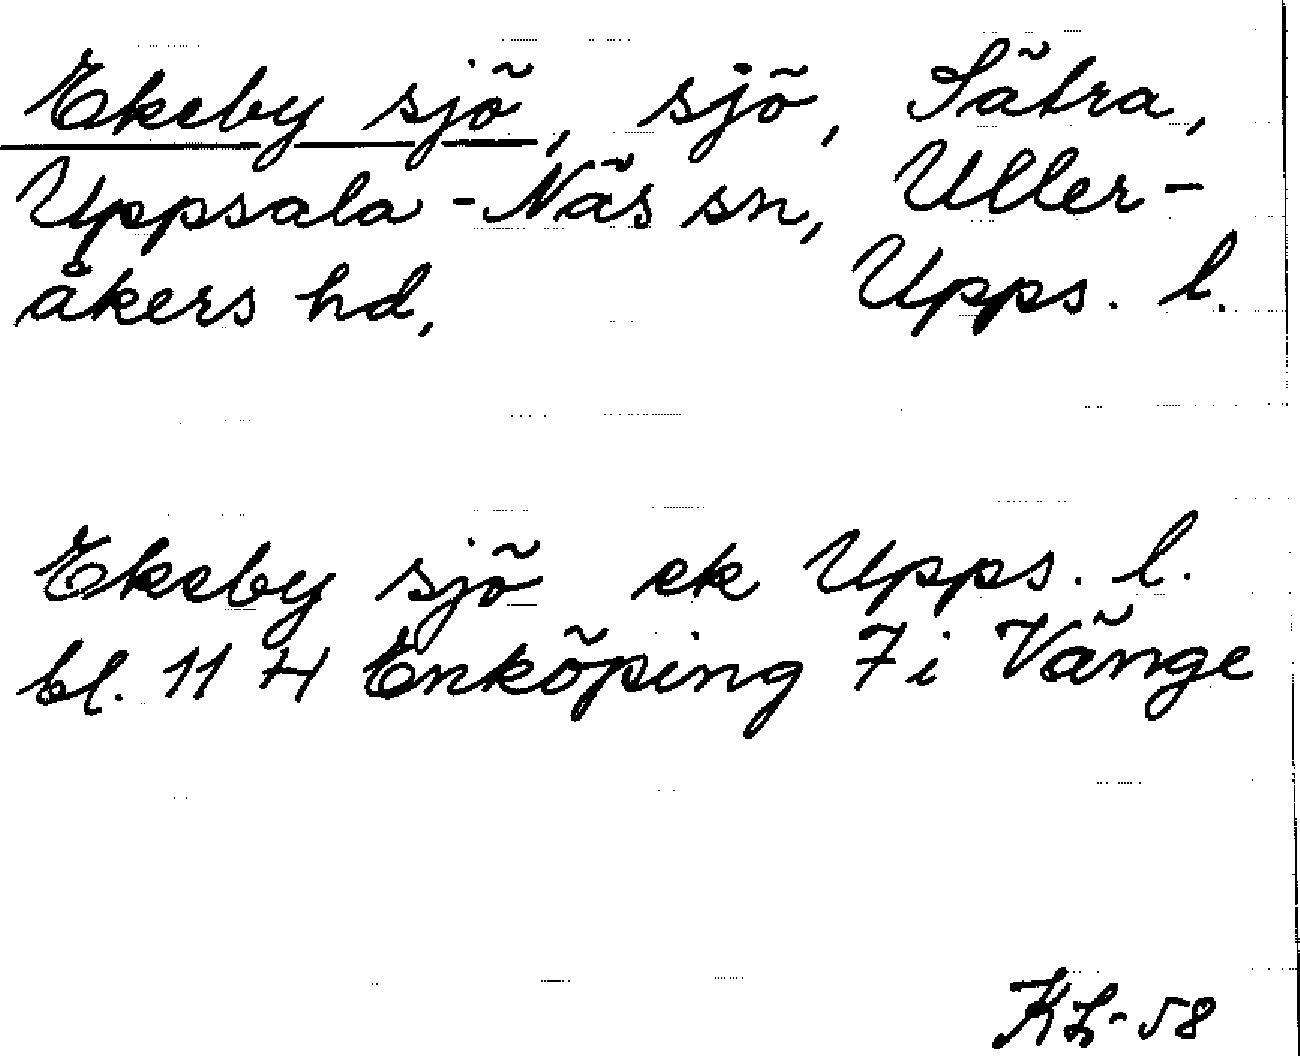 Ekeby sjö, sjö, Sätra,
Uppsala-Näs sn, Uller-
åkers hd, Upps. l.
Ekeby sjö ek Upps. l.
bl. 11 H Enköping 7 i Vänge
KL-58